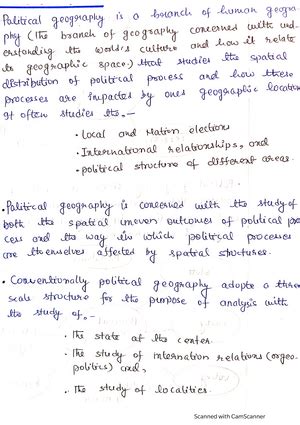 Political geography is a branch of human geogra-
phy (The branch of geography concerned with und-
erstanding the world's culture and how it relate
to geographic space.) that studies the spatial
distribution of political process and how these
processes are impacted by ones geographic location
It often studies the.-
• Local and Nation elections
• International relationships, and
• political structure of different areas.
• Political geography is concerned with the study of
both the spatial uneven outcomes of political pro
cess and the way in which political processes
are themselves affected by spatial structures.
• Conventionally political geography adopts a three
scale structure for the purpose of analysis with
the study of.-
• The state at the center.
• The study of internation relations (or geo-
politics) and,
• The study of localities.
Scanned with CamScanner